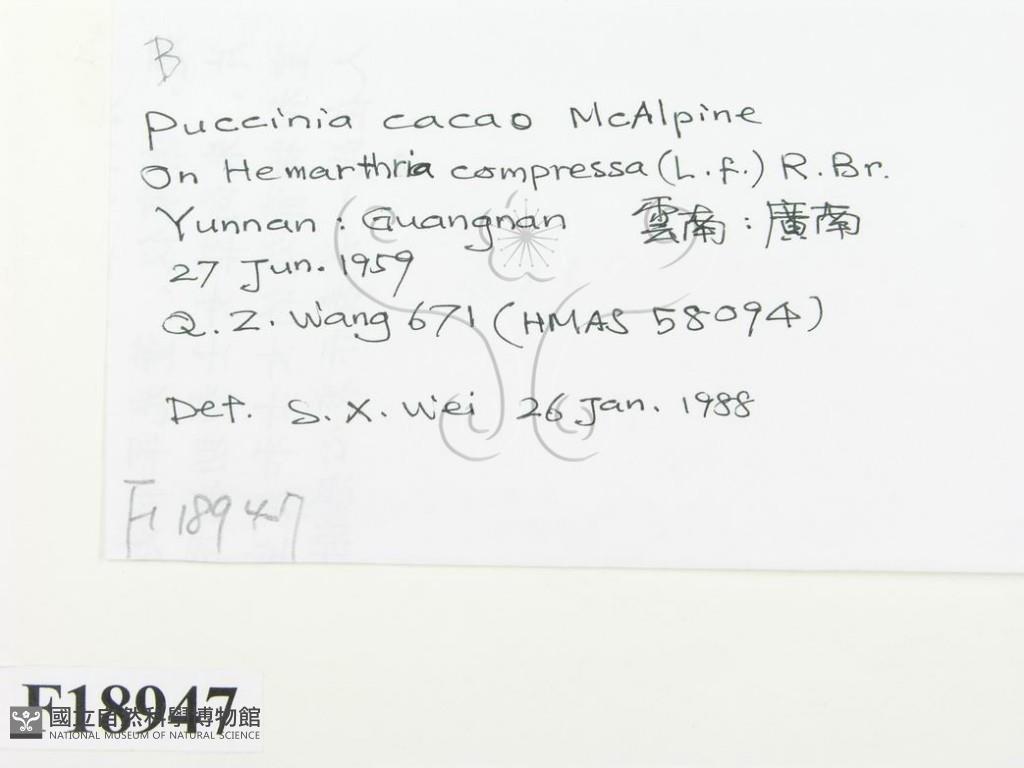 B
Puccinia cacao McAlpine
On Hemarthria compressa (L.f.) R.Br.
Yunnan : Guangnan 雲南 : 廣南
27 Jun. 1959
Q. Z. Wang 671 (HMAS 58094)
Det. S. X. Wei 26 Jan. 1988
F18947
F18947
國立自然科學博物館
NATIONAL MUSEUM OF NATURAL SCIENCE